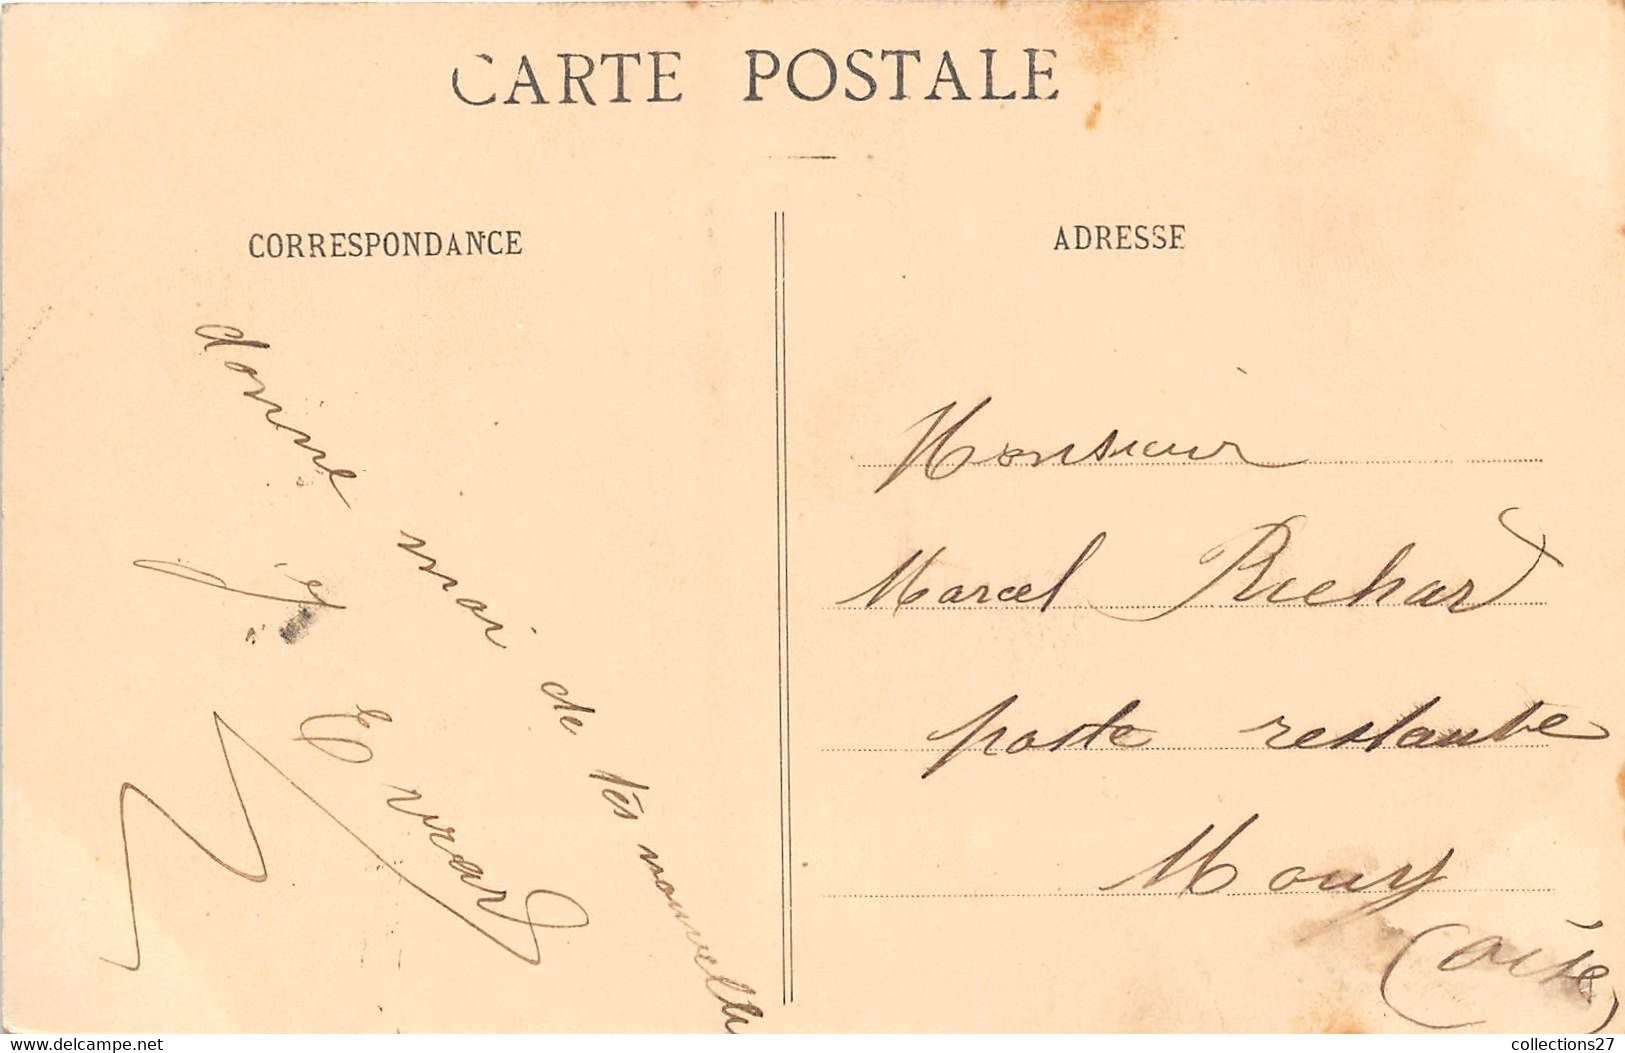 CARTE POSTALE
CORRESPONDANCE
ADRESSE
donne moi de tes nouvelle
Evrard
Monsieur
Marcel Richard
poste restante
Mouy
(Oise)
www.delcampe.net
collections27